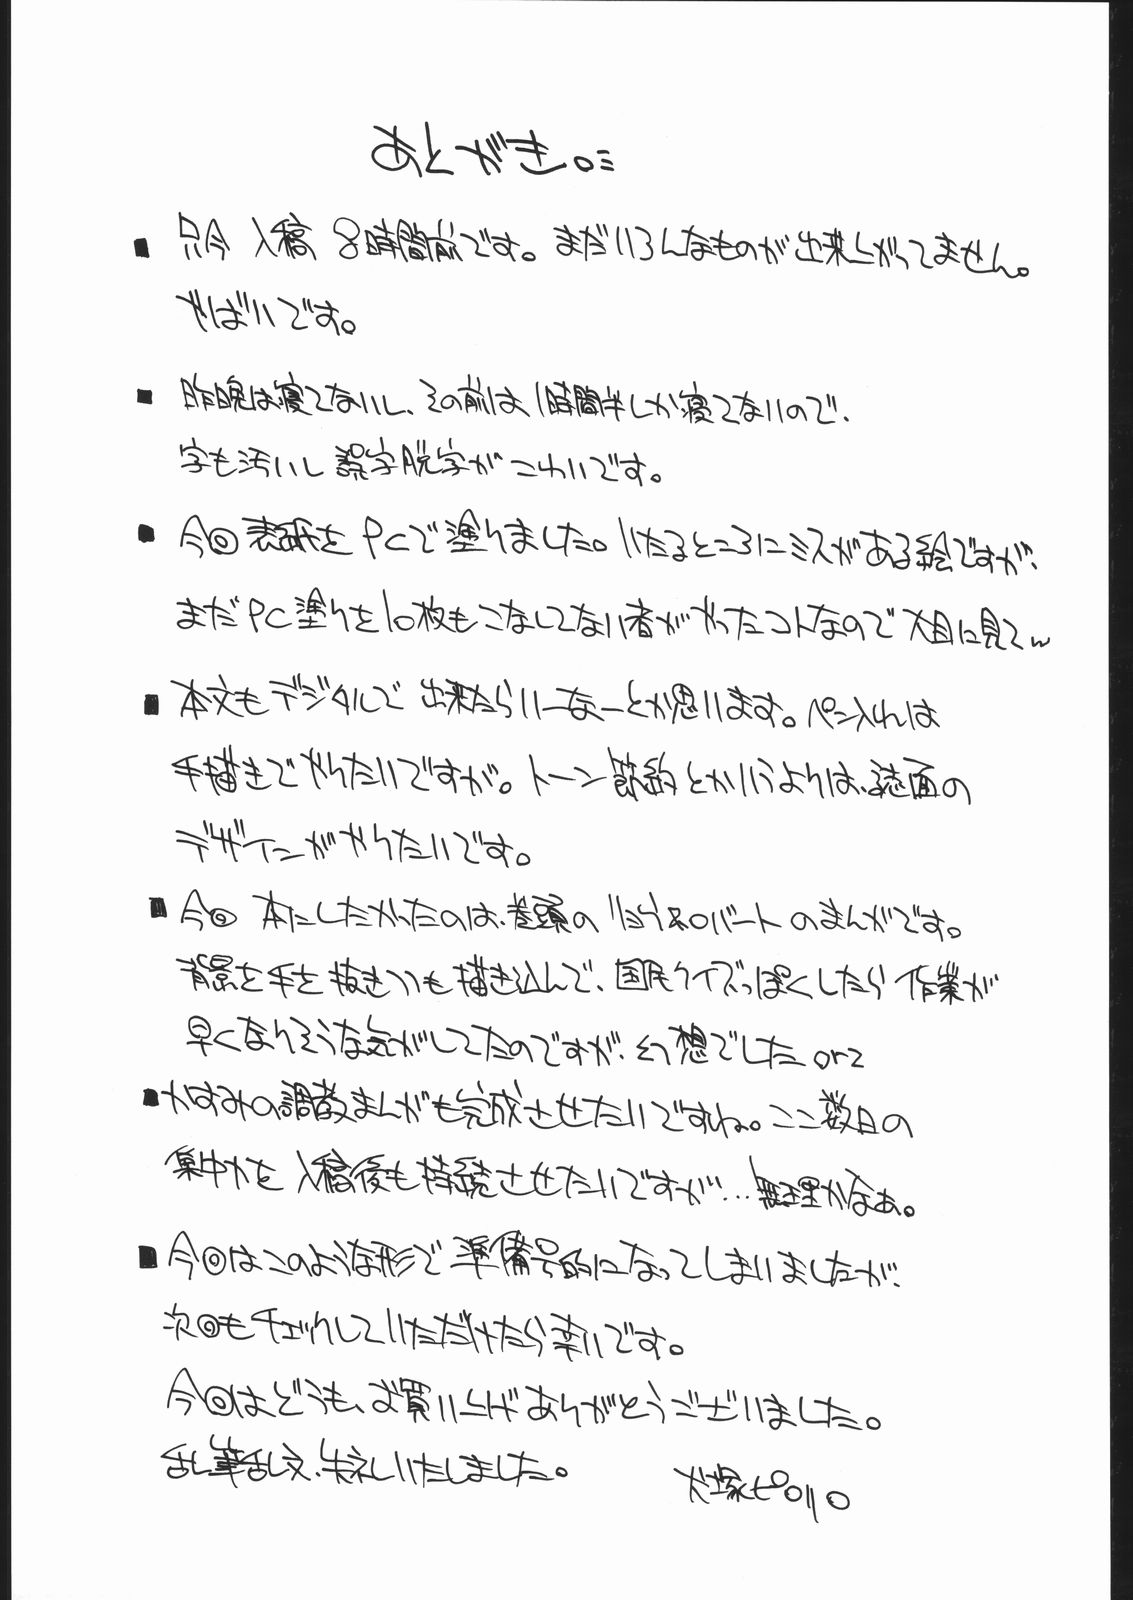 あとがき。
■ 只今 入稿 8時間前です。まだいろんなものが出来上がってません。
やばいです。
■ 昨晩は寝てないし、その前は、1時間半しか寝てないので、
字も汚いし 誤字脱字が こわいです。
■ 今回 表紙を PCで塗りました。いたるところにミスがある絵ですが、
まだPC塗りを10枚もこなしてない者がやったコトなので大目に見てw
■ 本文もデジタルで 出来たらいーなーとか思います。ペン入れは
手描きでやりたいですが。トーン節約とかいうよりは、誌面の
デザインがやりたいです。
■ 今回 本にしたかったのは、巻頭の リョウ&ロバートのまんがです。
背景を手を抜きつつも描き込んで、国民クイズっぽくしたら 作業が
早くなりそうな気がしてたのですが、幻想でした orz
■ かすみの調教まんがも完成させたいですね。ここ数日の
集中力を 入稿後も持続させたいですが…無理かなぁ。
■ 今回はこのような形で 準備号的になってしまいましたが、
次回もチェックしていただけたら幸いです。
今回はどうも、お買い上げありがとうございました。
乱筆乱文、失礼いたしました。
犬塚ピロリロ